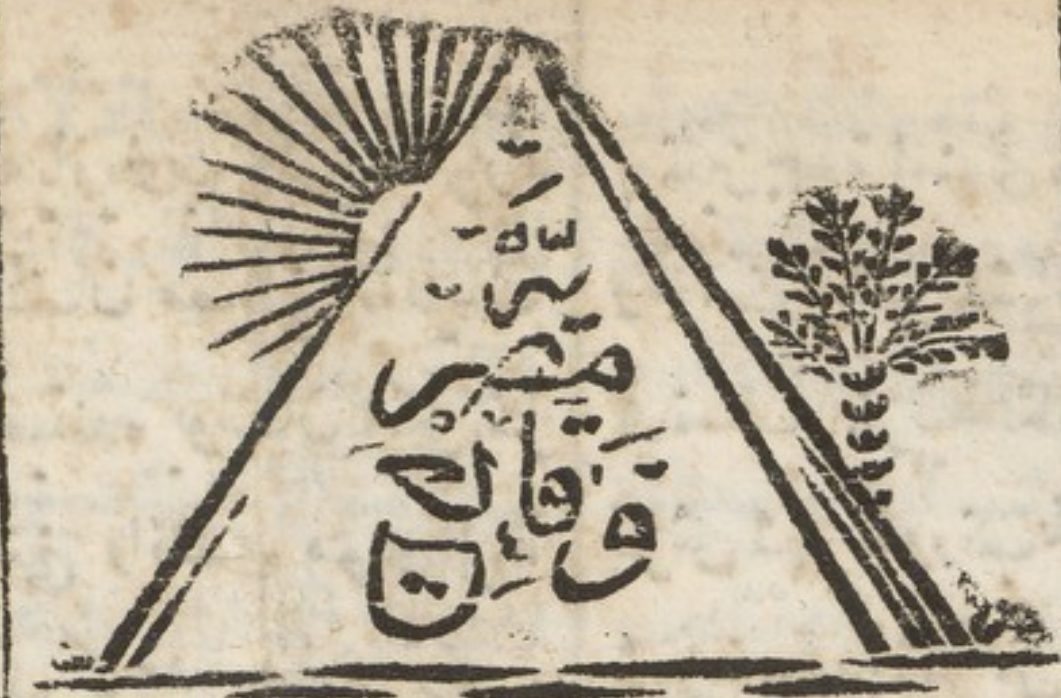 وَقَايِعِ
مِصْرِيَّه